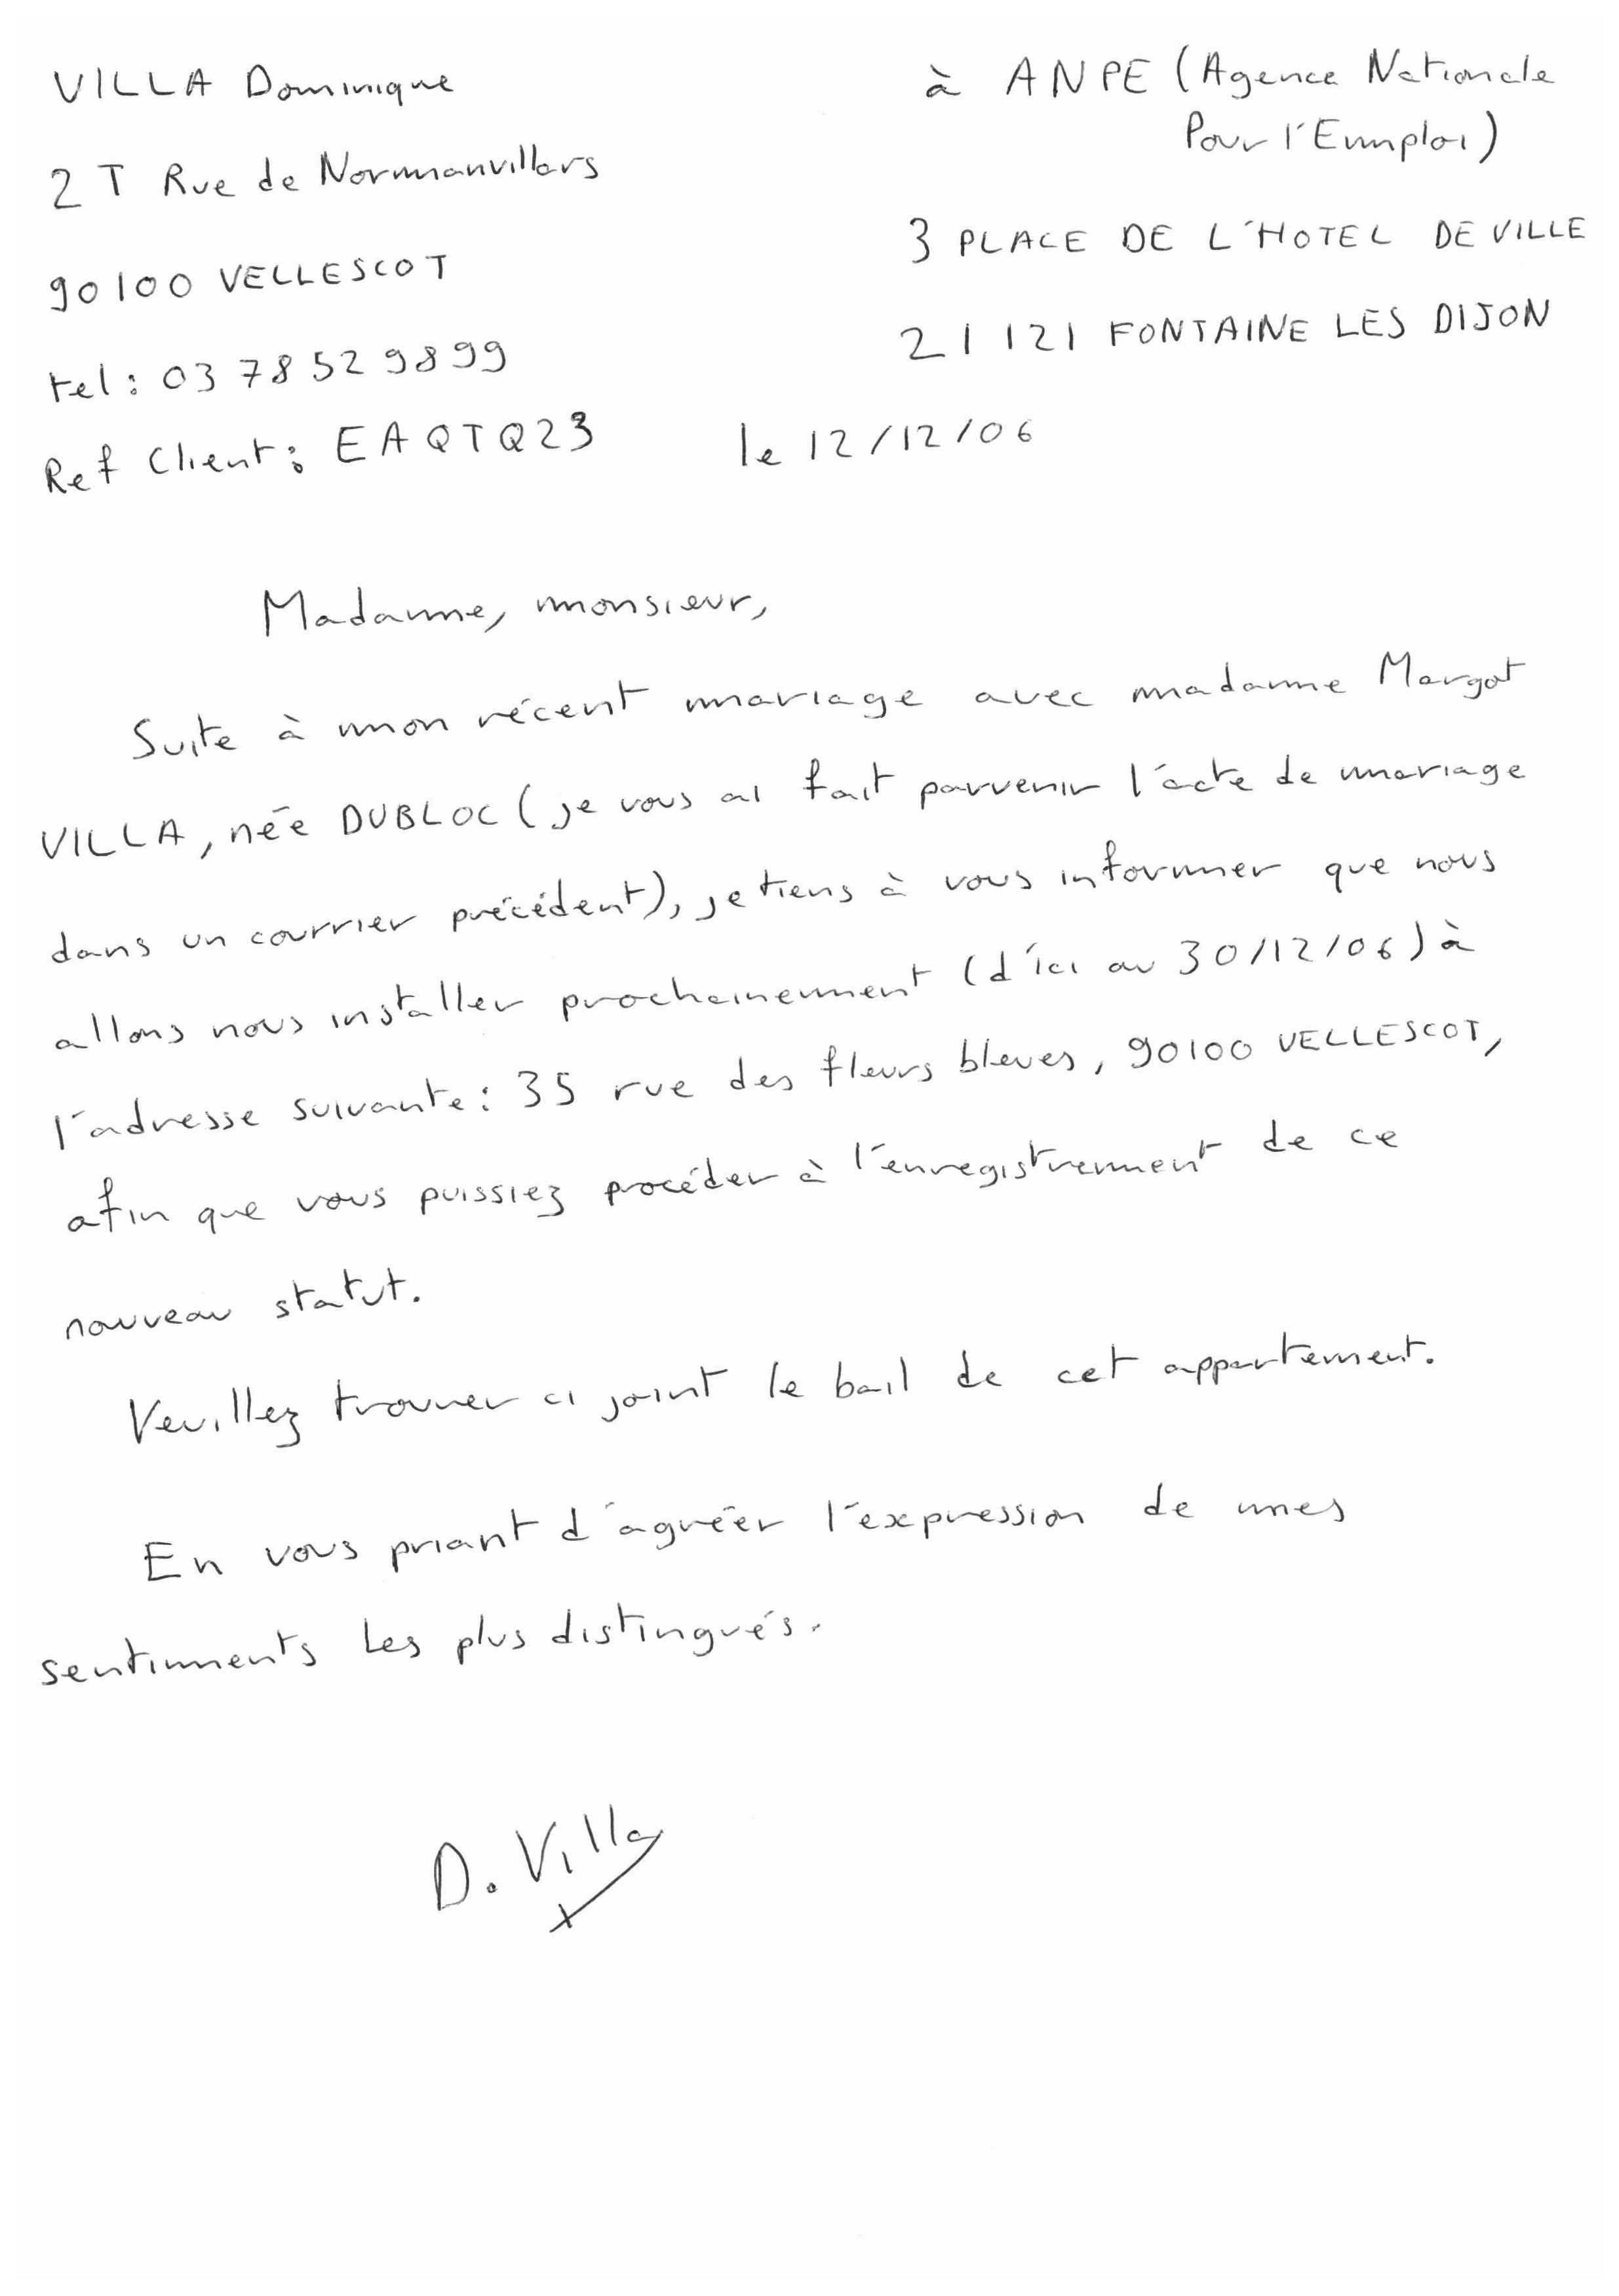 VILLA Dominique
2 T Rue de Normanvillars
90100 VELLESCOT
tel : 03 78 52 98 99
Ref Client : EAQTQ23
à ANPE (Agence Nationale
Pour l'Emploi)
3 PLACE DE L'HOTEL DE VILLE
21121 FONTAINE LES DIJON
le 12/12/06
Madame, monsieur,
Suite à mon récent mariage avec madame Margot
VILLA, née DUBLOC (je vous ai fait parvenir l'acte de mariage
dans un courrier précédent), je tiens à vous informer que nous
allons nous installer prochainement (d'ici au 30/12/06) à
l'adresse suivante : 35 rue des fleurs bleues, 90100 VELLESCOT,
afin que vous puissiez procéder à l'enregistrement de ce
nouveau statut.
Veuillez trouver ci joint le bail de cet appartement.
En vous priant d'agréer l'expression de mes
sentiments les plus distingués.
D. Villa